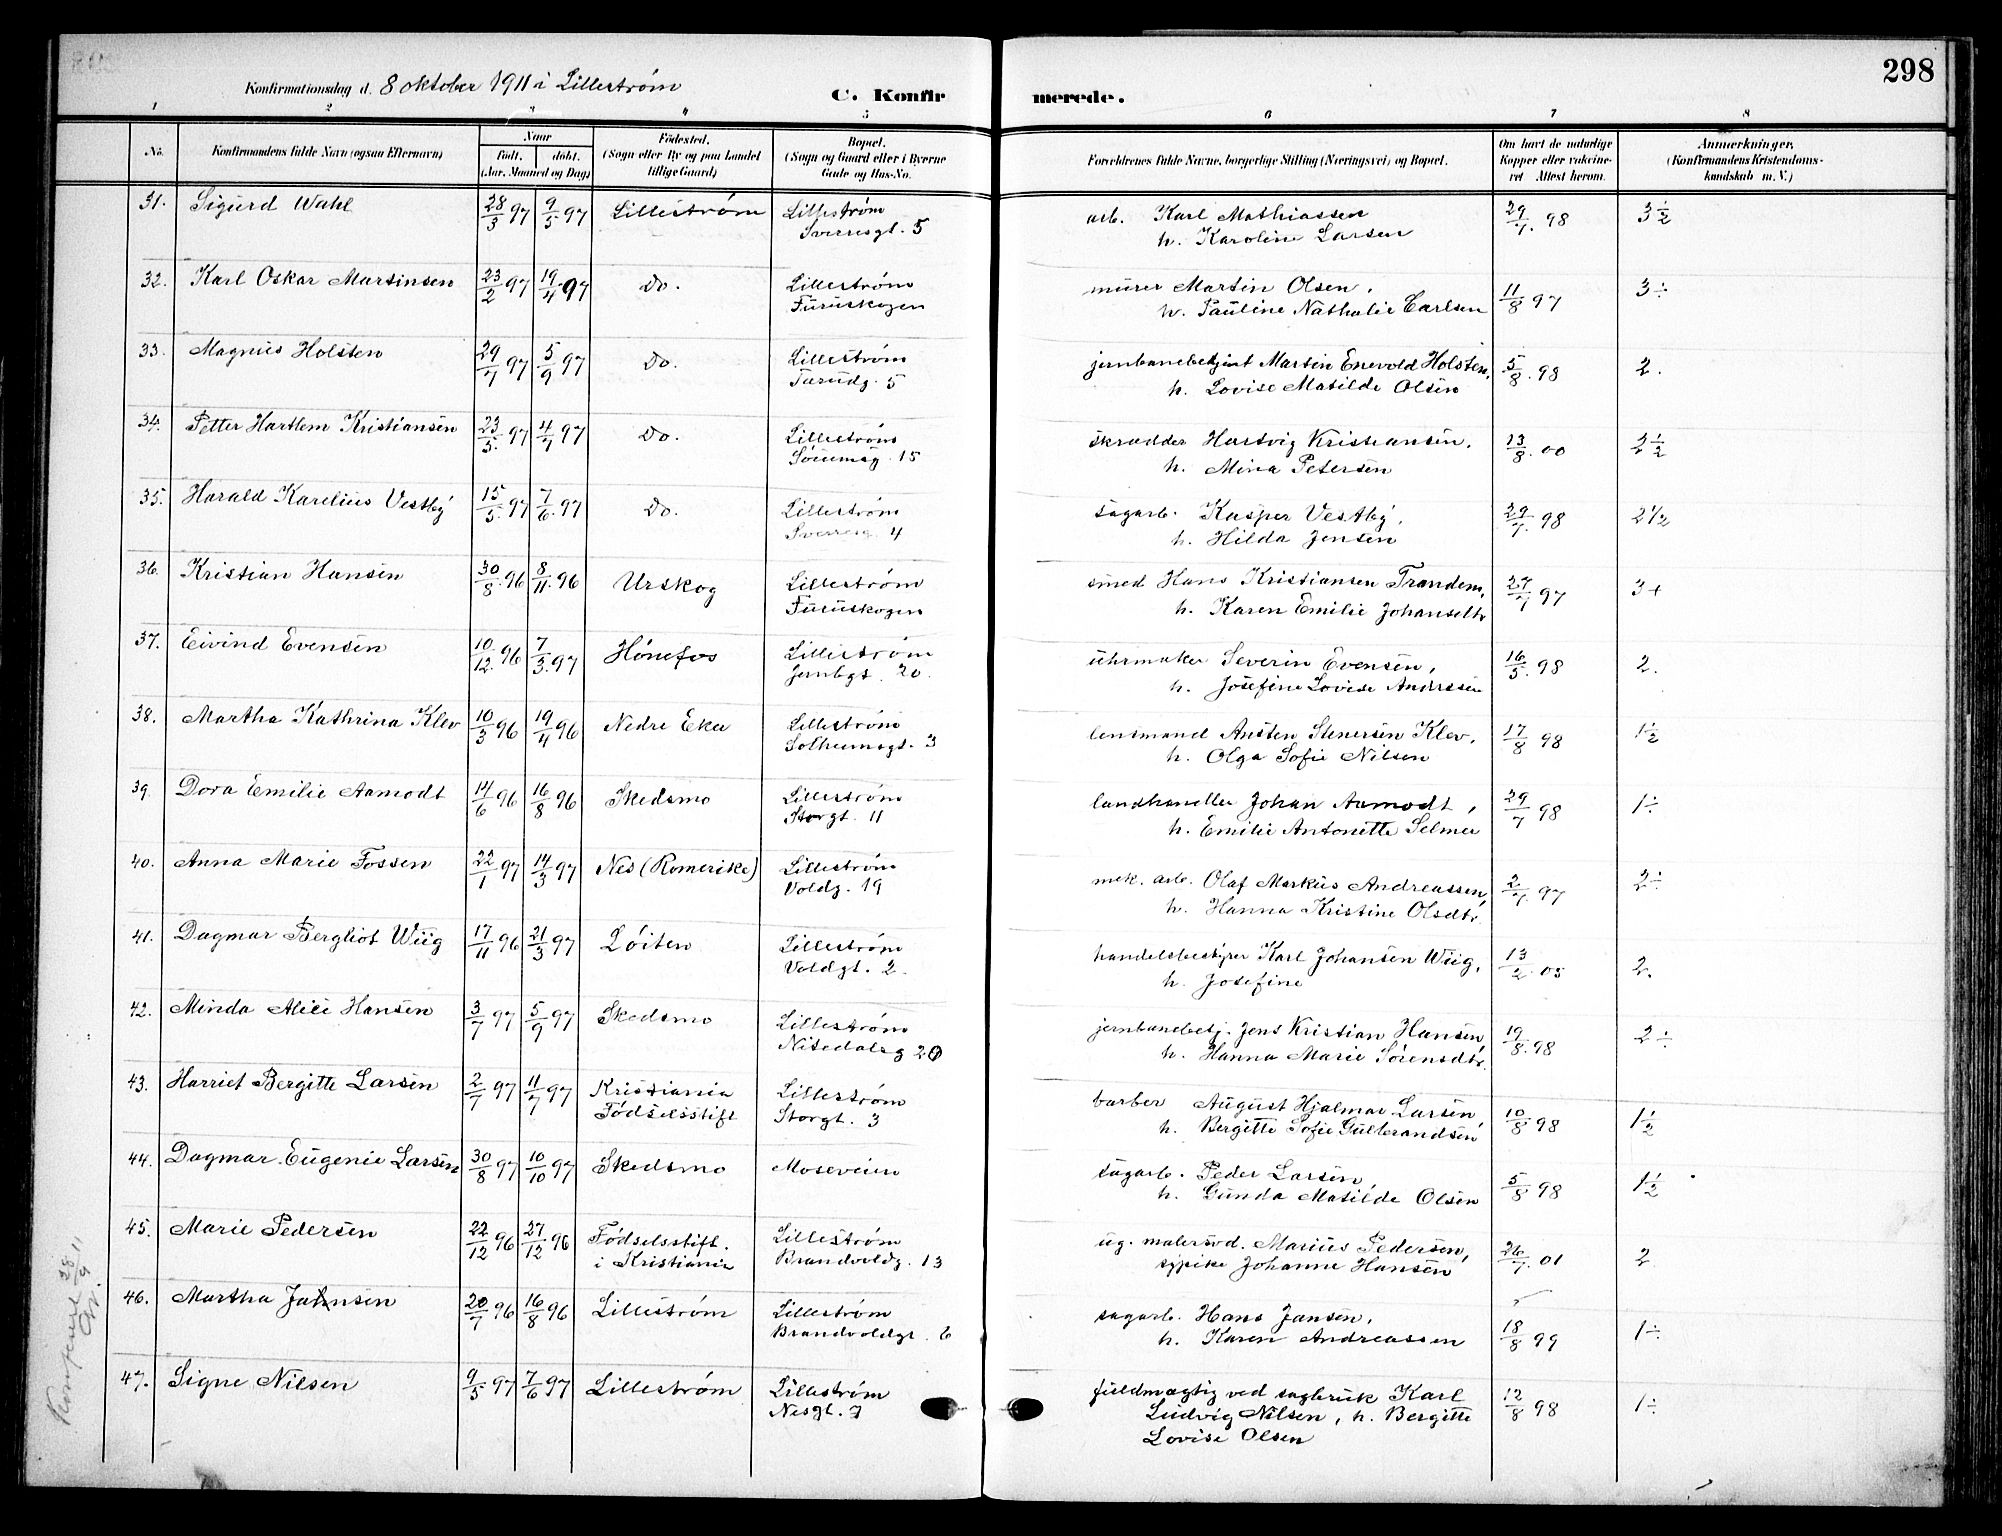 298
Konfirmationsdag d. 8 oktober 1911 i Lillestrøm
C. Konfir merede.
1 2 3 4 5 6 7 8
No. Konfirmandens fulde Navn (ogsaa Efternavn) Naar født. døbt. (Aar, Maaned og Dag) Fødested. (Sogn eller By og paa Landet tillige Gaard) Bopæl. (Sogn og Gaard eller i Byerne Gade og Hus-No. Forældrenes fulde Navne, borgerlige Stilling (Næringsvei) og Bopæl. Om havt de naturlige Kopper eller vakcineret Attest herom. Anmærkninger, (Konfirmandens Kristendomskundskab m. V.)
31. Sigurd Wahl 28/3 97 9/5 97 Lillestrøm Lillestrøm arb. Karl Mathiassen 29/7. 98 3 1/2
Sverresgt. 5 h. Karoline Larsen
32. Karl Oskar Martinsen 23/2 97 19/4 97 Do. Lillestrøm murer Martin Olsen, 11/8 97 3 ÷
Furuskogen h. Pauline Nathalie Carlsen
33. Magnus Holsten 29/7 97 5/9 97 Do. Lillestrøm jernbanebetjent Martin Enevold Holsten, 5/8. 98 2.
Furudg. 5 h. Lovise Matilde Olsen
34. Petter Hartlem Kristiansen 23/5. 97 4/7 97 Do. Lillestrøm skrædder Hartvig Kristiansen, 13/8. 00 2 1/2
Sørumsg. 15 h. Mina Petersen
35. Harald Karelius Vestby 15/5. 97 7/6. 97 Do. Lillestrøm sagarb. Kasper Vestby, 29/7. 98 2 1/2
Sverresg. 4 h. Hilda Jensen
36. Kristian Hansen 30/8. 96 8/11. 96 Urskog Lillestrøm smed Hans Kristiansen Trandem, 27/7 97 3+
Furuskogen h. Karen Emilie Johansdtr
37. Eivind Evensen 10/12. 96 7/3. 97 Hønefos Lillestrøm uhrmaker Severin Evensen, 16/5. 98 2.
Jernbgt. 20. h. Josefine Lovise Andrsen
38. Martha Kathrina Klev 10/3 96 19/4 96 Nedre Eker Lillestrøm lensmand Ansten Stenersen Klev, 17/8 98 1 1/2
Solheimsgt. 3 h. Olga Sofie Nilsen
39. Dora Emilie Aamodt 14/6 96 16/8 96 Skedsmo Lillestrøm landhandler Johan Aamodt, 29/7 98 1÷
Storgt. 11 h. Emilie Antonette Selmer
40. Anna Marie Fossen 22/1 97 14/3 97 Nes (Romerike) Lillestrøm mek. arb. Olaf Markus Andreassen, 2/7. 97 2÷
Voldg. 19 h. Hanna Kristine Olsdtr.
41. Dagmar Bergliot Wiig 17/11 96 21/3 97 Løiten Lillestrøm handelsbestyrer Karl Johansen Wiig, 13/2. 05 2.
Voldgt. 2. h. Josefine
42. Minda Alice Hansen 3/7 97 5/9 97 Skedsmo Lillestrøm jernbanebetj. Jens Kristian Hansen, 19/8. 98 2÷
Nitedalsg 20 h. Hanna Marie Sørensdtr.
43. Harriet Bergitte Larsen 2/7 97 11/7 97 Kristiania Lillestrøm barber August Hjalmar Larsen 10/8 98 1 1/2
Fødselsstift Storgt. 3 h. Bergitte Sofie Gulbrandsen
44. Dagmar Eugenie Larsen 30/8 97 10/10 97 Skedsmo Moseveien sagarb. Peder Larsen, 5/8 98 1 1/2
h. Gunda Matilde Olsen
45. Marie Pedersen 22/12 96 27/12 96 Fødselsstift. Lillestrøm ug. malersvd. Marius Pedersen, 26/7. 01 2
i Kristiania Brandvoldg. 13 sypike Johanne Hansen
46. Martha Jahnsen 20/7 96 16/8 96 Lillestrøm Lillestrøm sagarb. Hans Jansen, 18/8 99 1÷
Brandvoldgt. 6 h. Karen Andreassen
47. Signe Nilsen 9/5 97 7/6 97 Lillestrøm Lillestrøm fuldmægtig ved sagbruk Karl 12/8 98 1÷
Nesgt. 7 Ludvig Nilsen, h. Bergitte
Lovise Olsen